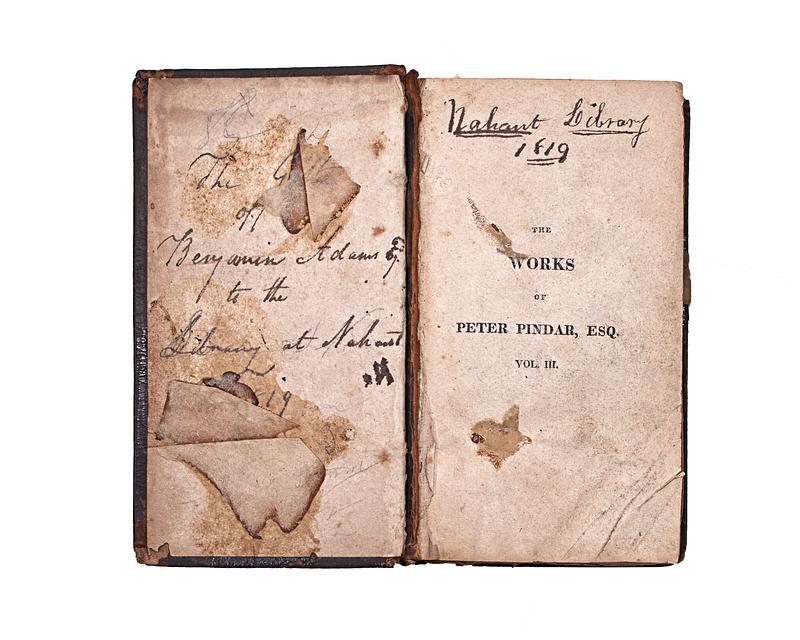 The
of
Benjamin Adams Esq.
to the
Library at Nahant
19
Nahant Library
1819
THE
WORKS
OF
PETER PINDAR, ESQ.
VOL. III.